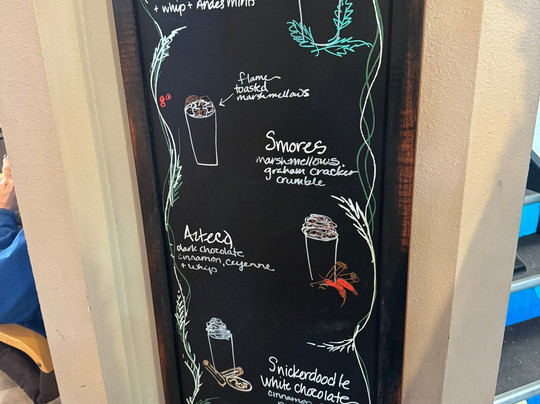 + whip + Andes mints
flame
toasted
marshmallows
Smores
marshmellows,
graham cracker
crumble
Azteco
dark chocolate
cinnamon, cayenne
+ whip
Snickerdoodle
White chocolate
cinnamon